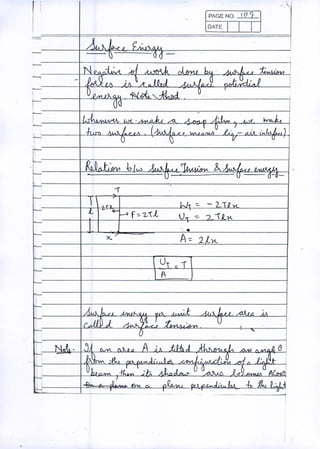 PAGE NO. 109
DATE
Surface Energy
Negative of work done by surface tension
forces is called surface potential
energy.
Whenever we make a soap film, we make
two surfaces. (surface means liq-air interface)
Relation b/w Surface Tension & Surface energy
T
T
l
F = 2Tl
x
Wt = - 2Tlx
Ut = 2Tlx
A = 2lx
Ut = T
A
Surface energy per unit surface area is
called surface tension.
Note- If an area A is tilted through an angle θ
from the perpendicular configuration of a light
beam, then its shadow area becomes Acosθ
on a plane perpendicular to the light